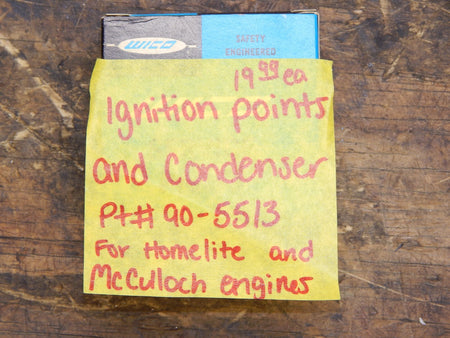 WICO
SAFETY
ENGINEERED
19 99 ea
Ignition points
and Condenser
Pt# 90-5513
For Homelite and
McCulloch engines